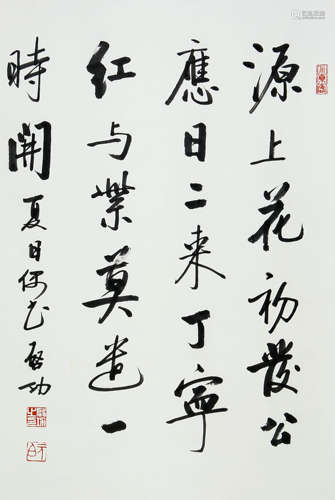 源上花初發公
應日二来丁寧
紅与紫莫遣一
時開 夏日偶书 啓功